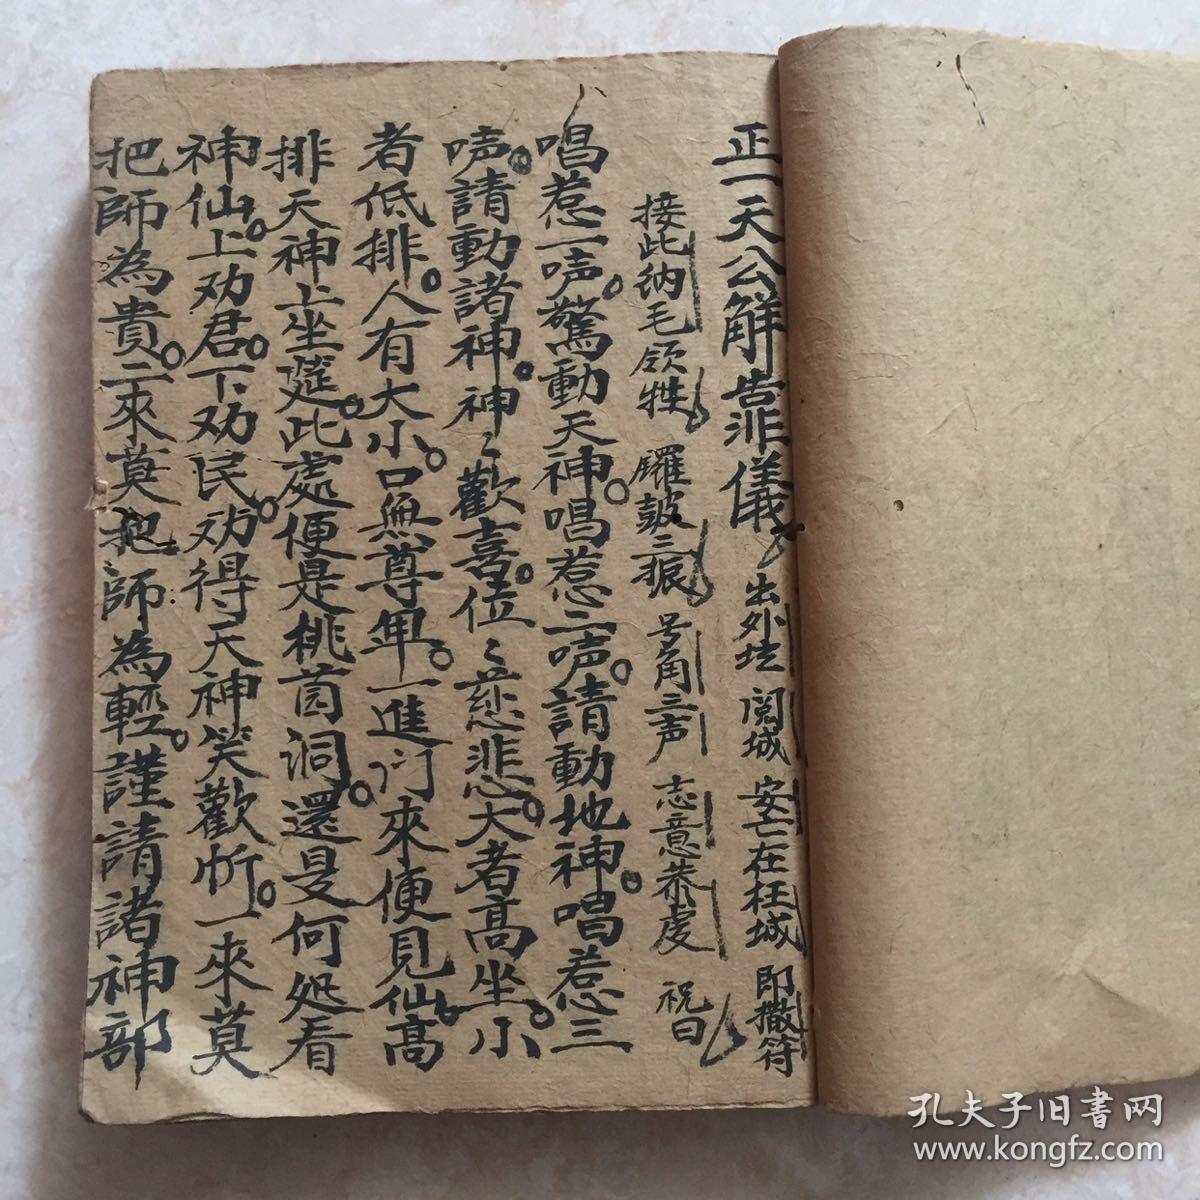 正一天公解告非儀 出外坛 閲城 安亡在枉城 即撒符
接此纳毛领牲 鑼皷二振 号角三声 志意恭虔 祝曰
唱惹一啨。驚動天神。唱惹二啨。請動地神。唱惹三
啨。請動諸神。神〻歡喜。位〻慈悲。大者高坐。小
者低排。人有大小。口無尊卑。一進门來便見仙。高
排天神上坐筵。此處便是桃茵洞。還是何処看
神仙。上劝君。下劝民。劝得天神笑歡忻。一來莫
把師為貴。二來莫把師為輕。謹請諸神部
孔夫子旧書网
www.kongfz.com